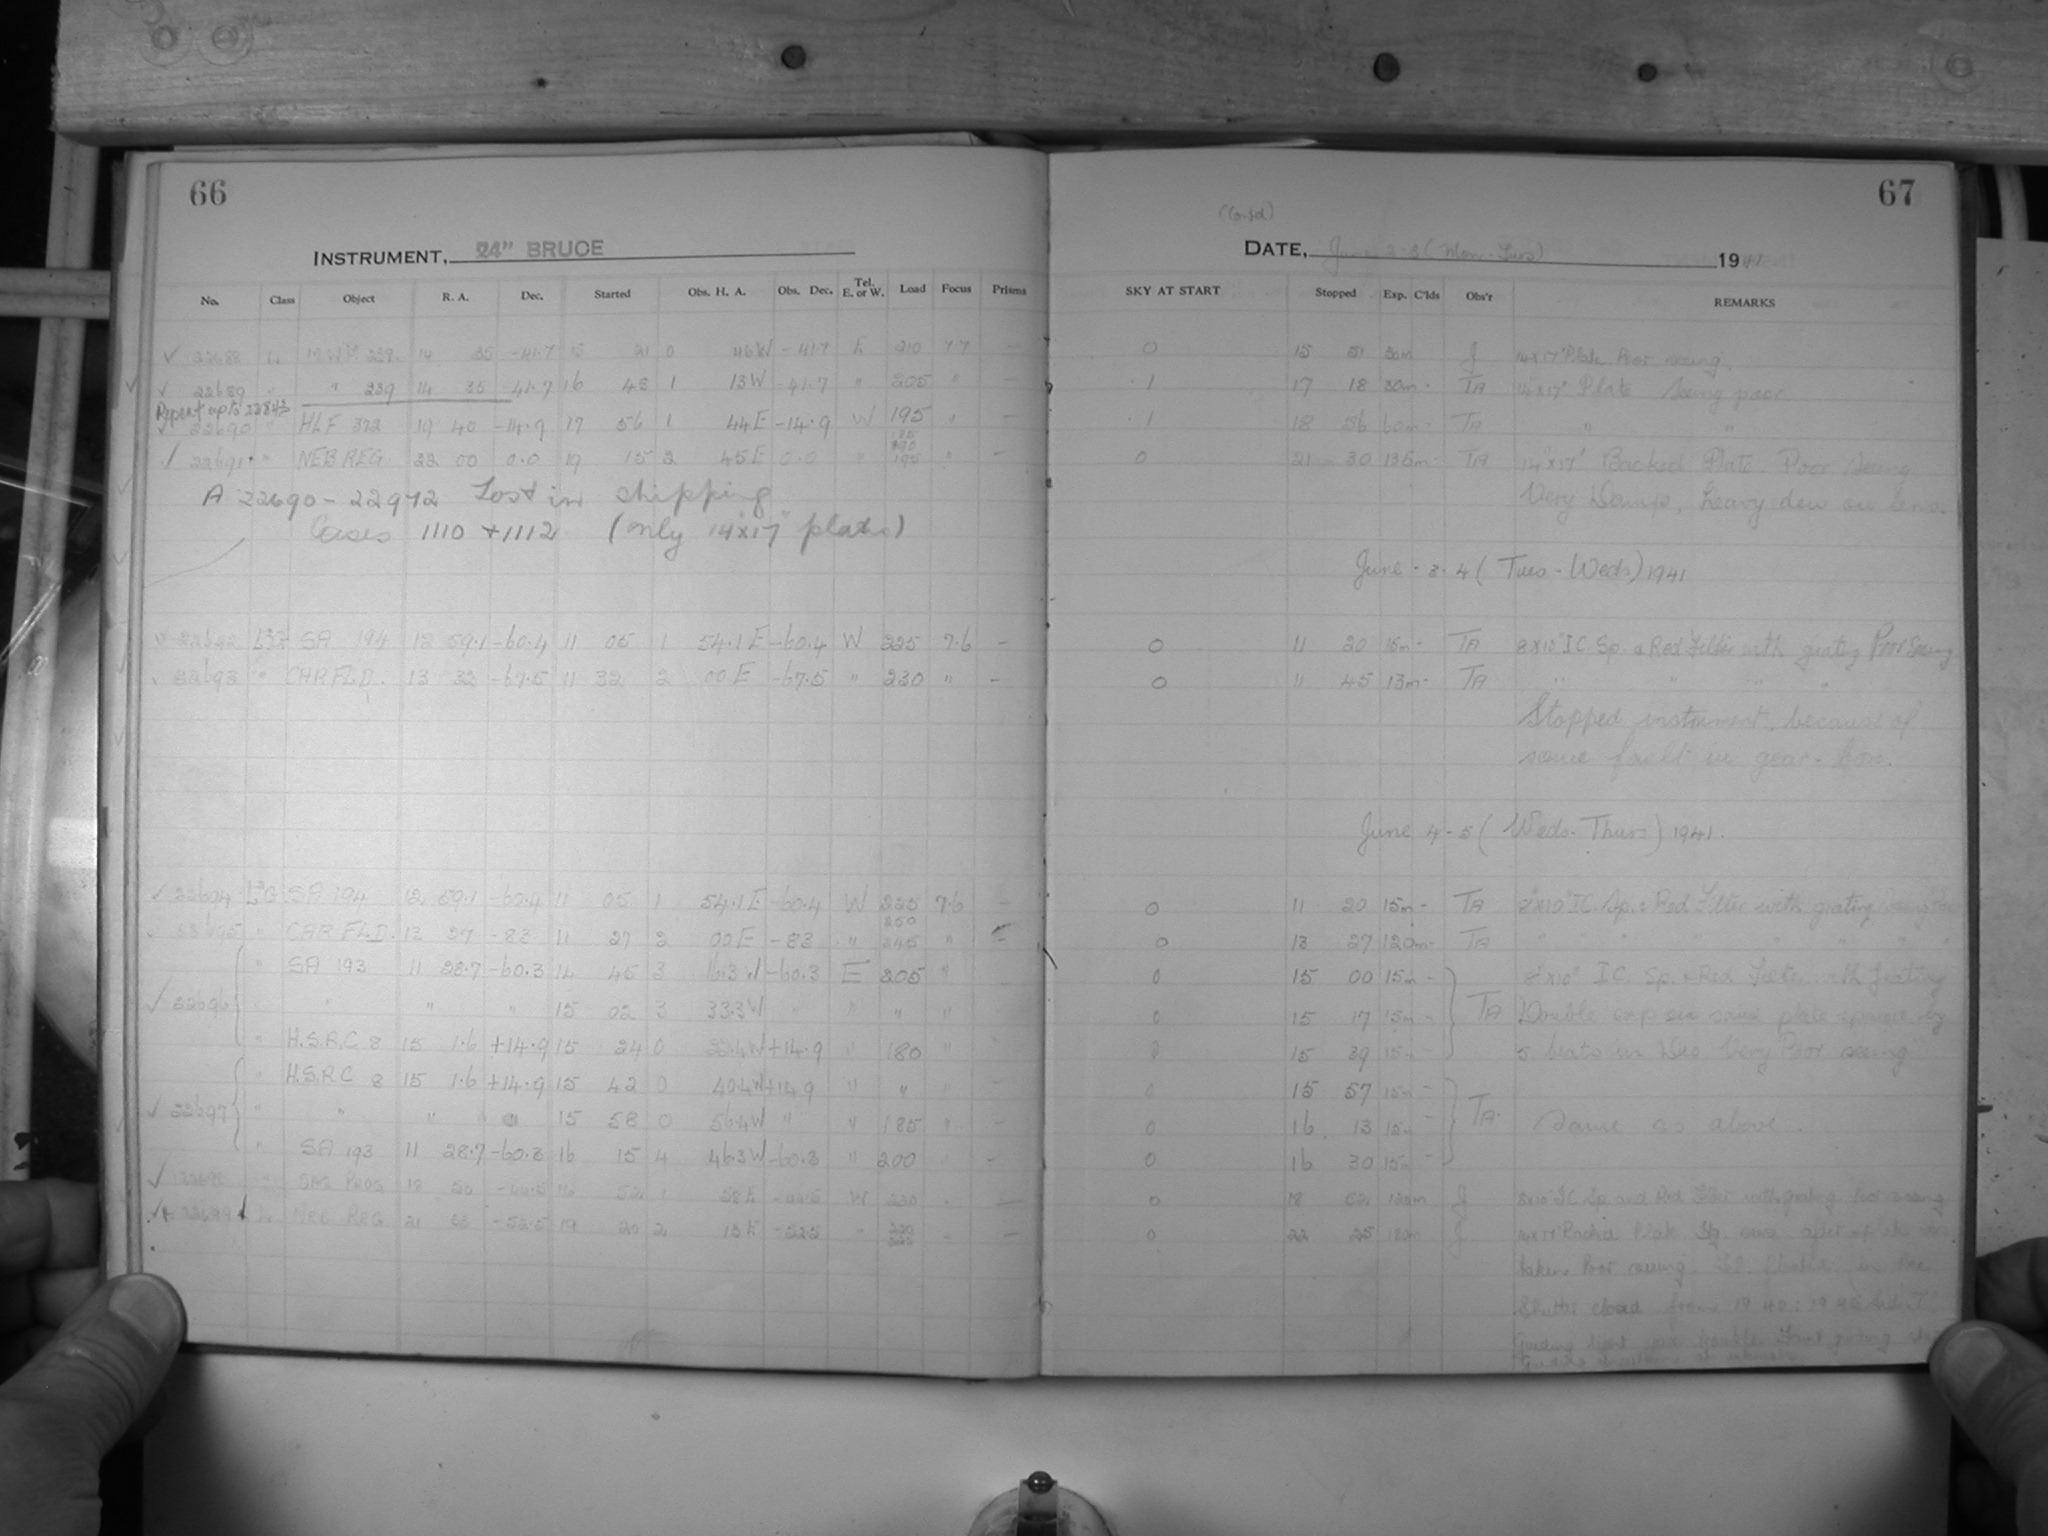 66
INSTRUMENT, 24" BRUCE
No. Class Object R. A. Dec. Started Obs. H. A. Obs. Dec. Tel. E. or W. Load Focus Prisms
✓ 22688 239 14 35 -41.7 15 21 0 46W -41.7 E 210 7.7 —
✓ 22689 " " 239 14 35 -41.7 16 48 1 13W -41.7 " 205 " —
Repeat up to 22843
22690 " HLF 372 19 40 -14.9 17 56 1 44E -14.9 W 195 "
✓ 22691 " NEB REG. 22 00 0.0 19 15 2 45E 0.0 " 195 " —
A 22690 - 22972 Lost in shipping
Cases 1110 + 1112 (only 14"x17" plates)
22692 SA 194 12 59.1 -60.4 11 05 1 54.1E -60.4 W 225 7.6 —
22693 " CAR FLD. 13 32 -67.5 11 32 2 00E -67.5 " 230 " —
✓ 22694 SA 194 12 59.1 -60.4 11 05 1 54.1E -60.4 W 225 7.6 —
22695 " CAR FLD. 13 27 -83 11 27 2 00E -83 " 250 245 " —
" SA 193 11 28.7 -60.3 14 45 3 16.3W -60.3 E 205 "
✓ 22696 " " " " 15 02 3 33.3W " " " "
" H.S.R.C 8 15 1.6 +14.9 15 24 0 22.4W +14.9 " 180 "
" H.S.R.C 8 15 1.6 +14.9 15 42 0 40.4W +14.9 " " " —
✓ 22697 " " " 15 58 0 56.4W " " 185 " —
" SA 193 11 28.7 -60.3 16 15 4 46.3W -60.3 " 200 " —
✓ 22698 " 18 50 -44.5 16 52 1 58E -44.5 W 230 —
22699 NEB REG 21 33 -52.5 19 20 2 13E -52.5 " —
67
(Contd)
DATE, June 2-3 (Mon-Tues) 1941
SKY AT START Stopped Exp. C'lds Obs'r REMARKS
0 15 51 30m J 14x17" Plate Poor seeing.
.1 17 18 30m - TA 14"x17" Plate Seeing poor.
.1 18 56 60m - TA " "
0 21 30 135m - TA 14"x17" Backed Plate. Poor Seeing
Very Damp, heavy dew on lens.
June - 3-4 (Tues - Weds) 1941
0 11 20 15m - TA 8x10" I.C. Sp. & Red Filter with grating Poor Seeing
0 11 45 13m - TA " " " "
Stopped instrument, because of
some fault in gear-box.
June 4-5 (Weds-Thurs) 1941.
0 11 20 15m - TA 8"x10" I.C. Sp. & Red Filter with grating
0 13 27 120m - TA " " " " "
0 15 00 15m - 8"x10" I.C. Sp. & Red Filter with grating
0 15 17 15m - TA Double exp on same plate spaced by
0 15 39 15m - 5 in Dec Very Poor seeing
0 15 57 15m -
0 16 13 15m - TA. Same as above.
0 16 30 15m -
0 18 52 120m J 8x10" I.C. Sp. and Red Filter with grating. Poor seeing
0 22 25 180m J 14x17" Backed Plate
taken Poor seeing.
Shutter closed from 19 40 : 19 45